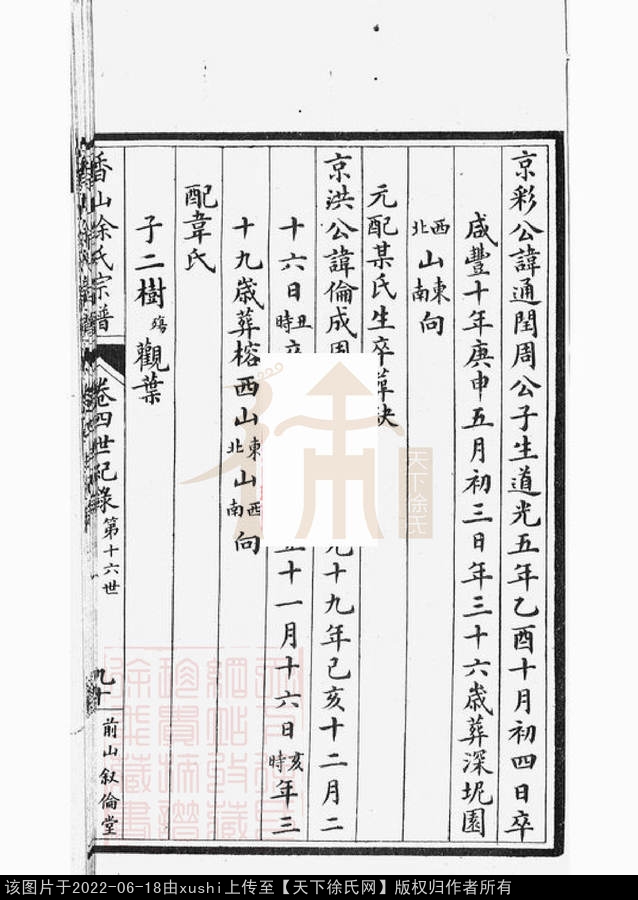 京彩公諱通閏周公子生道光五年乙酉十月初四日卒
咸豐十年庚申五月初三日年三十六歲葬深坭園
西北山東南向
元配某氏生卒葬缺
京洪公諱倫成周 十九年己亥十二月二
十六日丑時卒 十一月十六日亥時年三
十九歲葬榕西山東北山西南向
配韋氏
子二樹殤觀葉
香山徐氏宗譜 卷四世紀錄 第十六世 九十 前山叙倫堂
天下徐氏
该图片于2022-06-18由xushi上传至【天下徐氏网】版权归作者所有